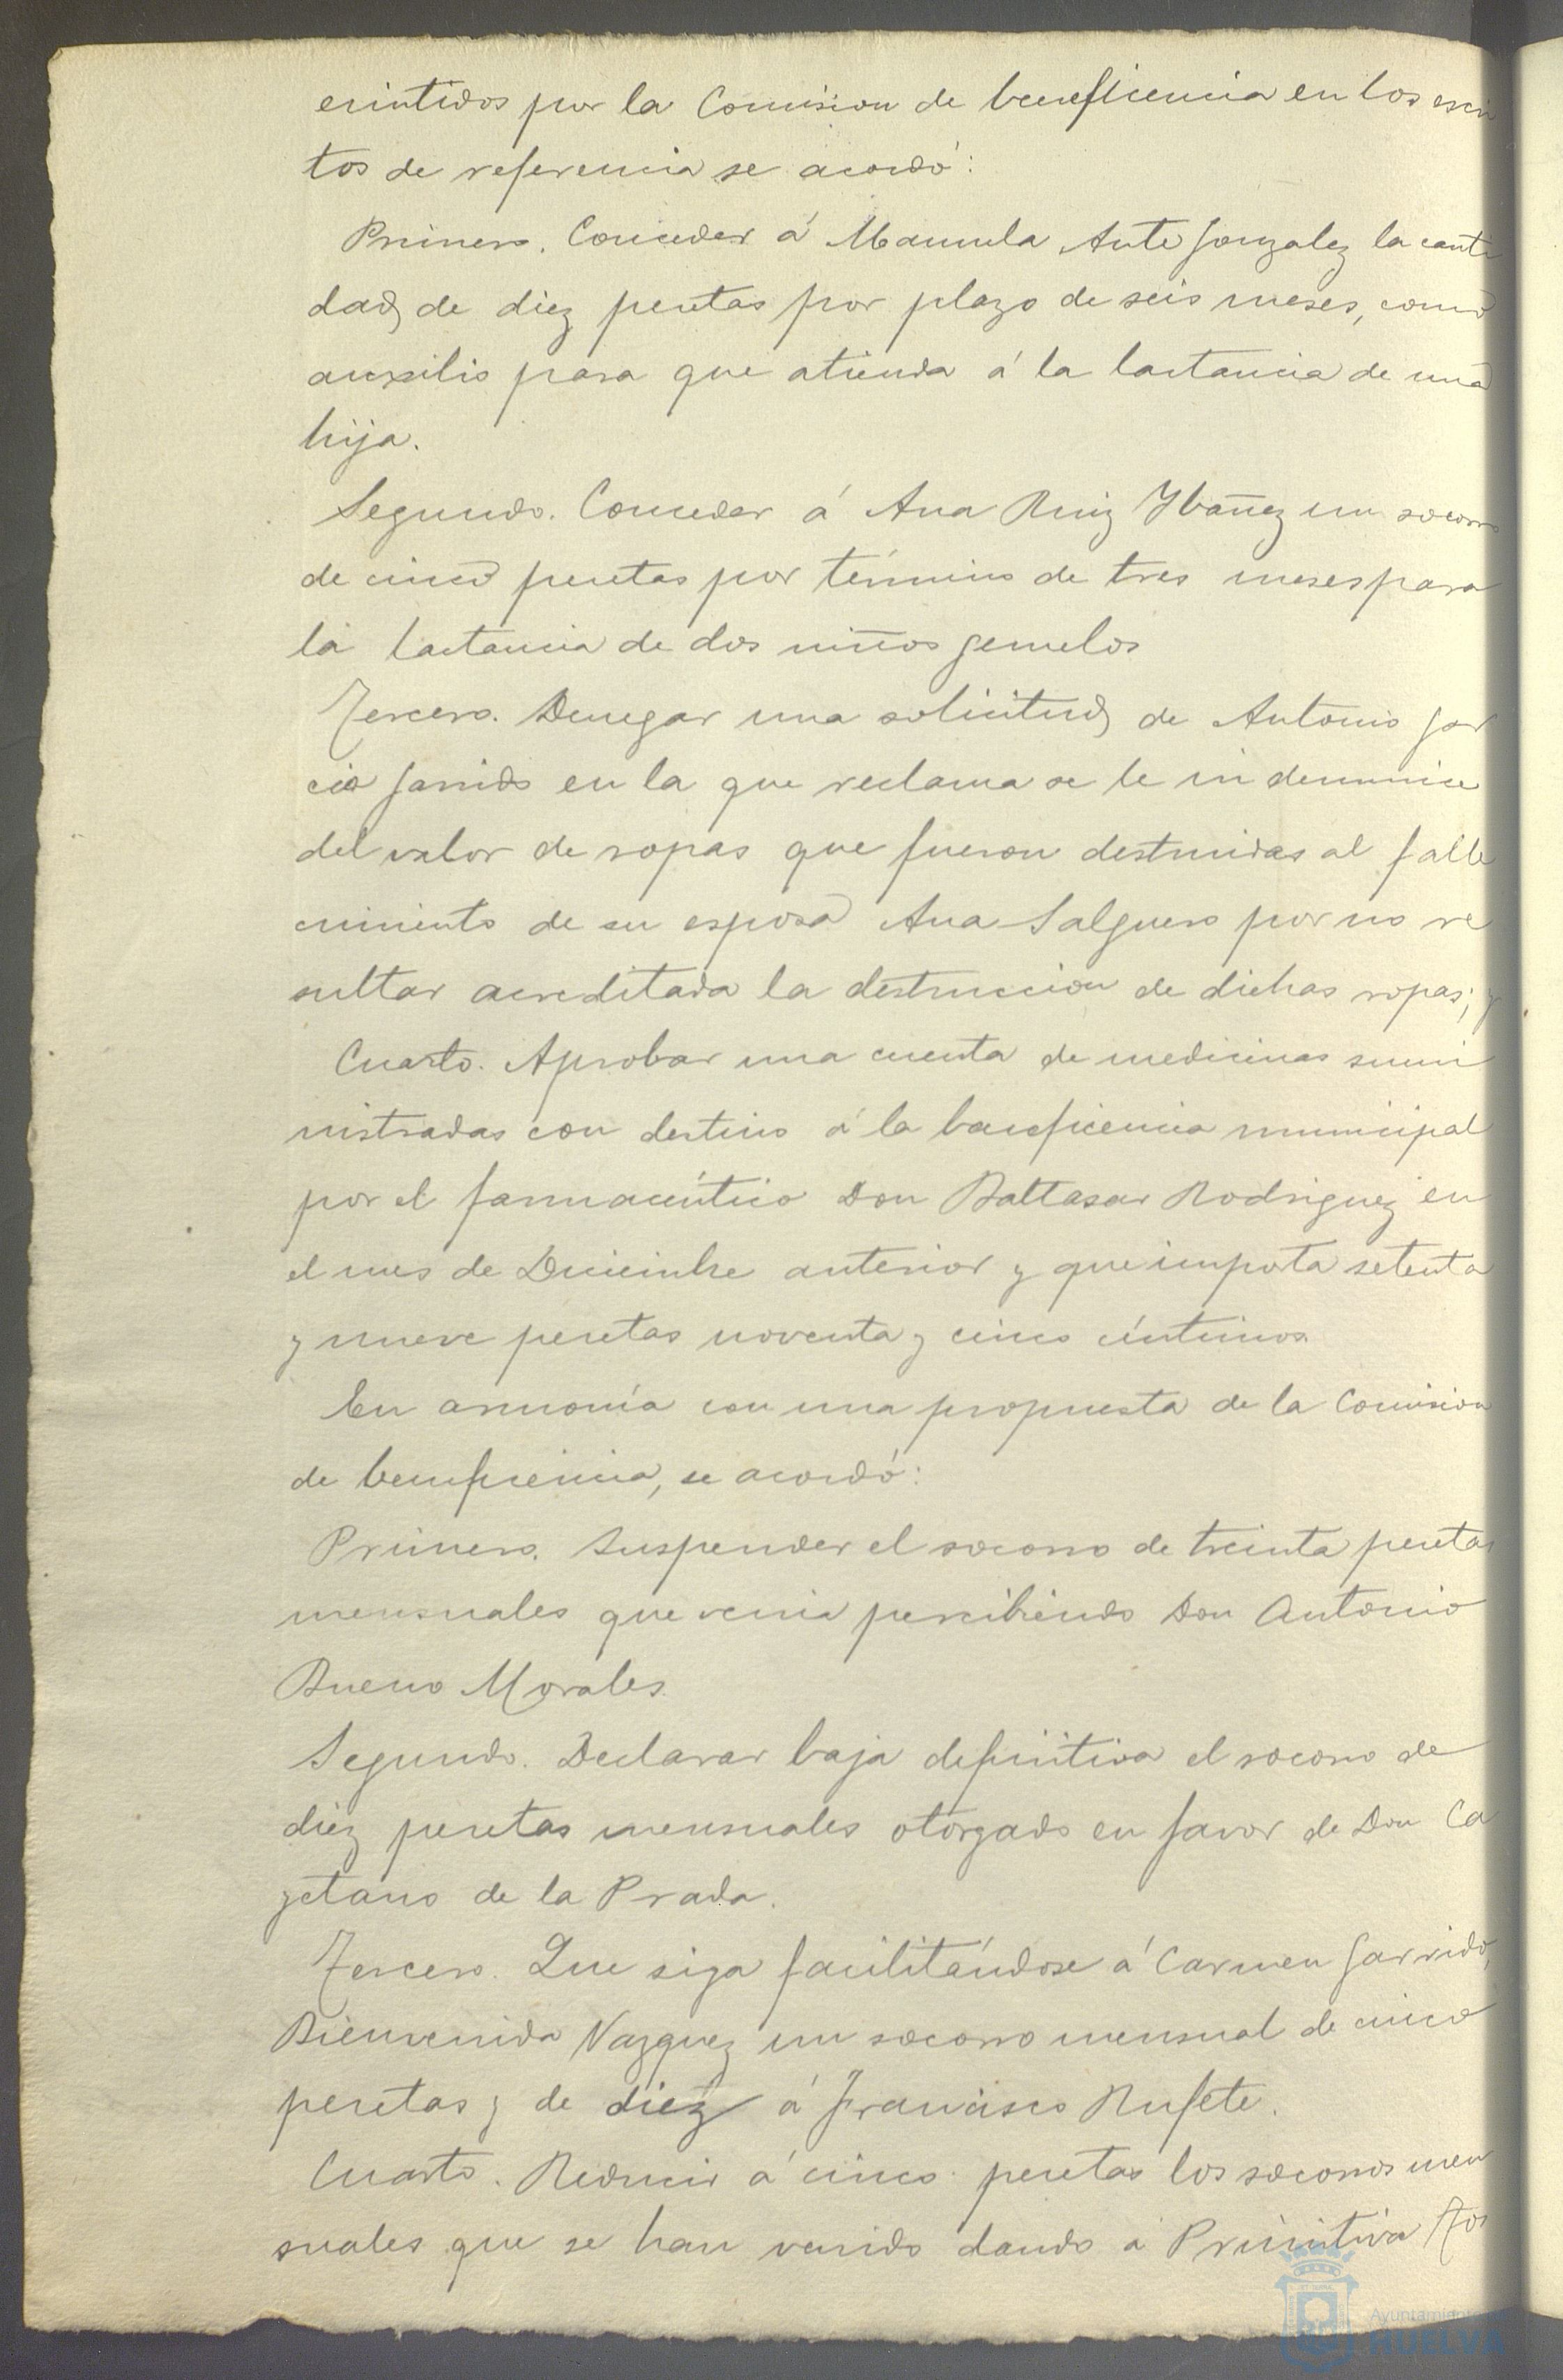 emitidos por la Comision de beneficencia en los escri
tos de referencia se acordó:
Primero. Conceder á Manuela Ante Gonzalez la canti
dad de diez pesetas por plazo de seis meses, como
auxilio para que atienda á la lactancia de una
hija.
Segundo. Conceder á Ana Ruiz Ybañez un socorro
de cinco pesetas por término de tres meses para
la lactancia de dos niños gemelos
Tercero. Denegar una solicitud de Antonio Gar
cia Garrido en la que reclama se le indemnice
del valor de ropas que fueron destruidas al falle
cimiento de su esposa Ana Salguero por no re
sultar acreditada la destruccion de dichas ropas; y
Cuarto. Aprobar una cuenta de medicinas sumi
nistradas con destino á la beneficencia municipal
por el farmacéutico Don Baltasar Rodriguez en
el mes de Diciembre anterior y que importa setenta
y nueve pesetas noventa y cinco céntimos
En armonía con una propuesta de la Comision
de beneficencia, se acordó:
Primero. Suspender el socorro de treinta pesetas
mensuales que venia percibiendo Don Antonio
Bueno Morales.
Segundo. Declarar baja definitiva el socorro de
diez pesetas mensuales otorgado en favor de Don Ca
yetano de la Prada.
Tercero. Que siga facilitándose á Carmen Garrido,
Bienvenida Vazquez un socorro mensual de cinco
pesetas y de diez á Francisco Rufete.
Cuarto. Reducir á cinco pesetas los socorros men
suales que se han venido dando á Primitiva
Ayuntamiento
HUELVA